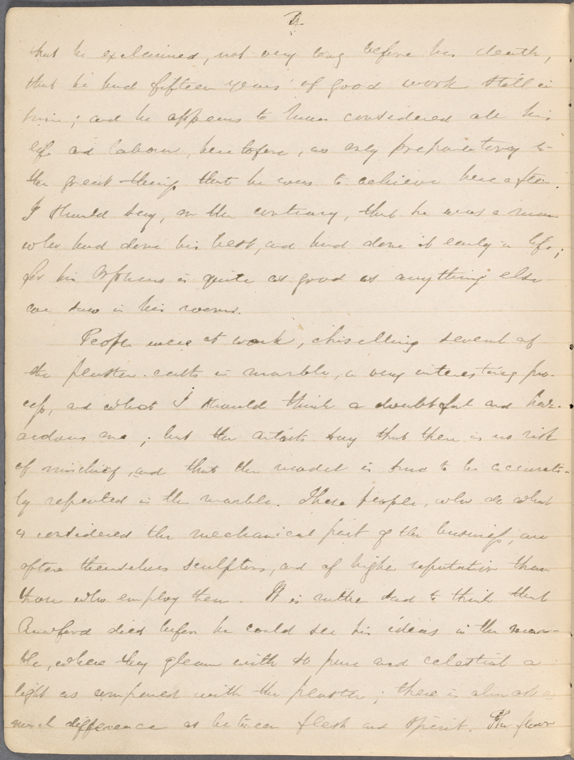 that he exclaimed, not very long before his death,
that he had fifteen years' of good work still in
him; and he appears to have considered all his
life and labour, heretofore, as only preparatory to
the great things that he was to achieve hereafter.
I should say, on the contrary, that he was a man
who had done his best, and had done it early in life;
for his Orpheus is quite as good as anything else
we saw in his rooms.
People were at work, chiselling several of
the plaster-casts in marble, a very interesting pro-
cess, and what I should think a doubtful and haz-
ardous one; but the artists say that there is no risk
of mischief, and that the model is sure to be accurate-
ly repeated in the marble. These people, who do what
is considered the mechanical part of the business, are
often themselves sculptors, and of higher reputation than
those who employ them. It is rather sad to think that
Crawford died before he could see his ideas in the mar-
ble, where they gleam with so pure and celestial a
light as compared with the plaster; there is almost as
much difference as between flesh and spirit. The floor